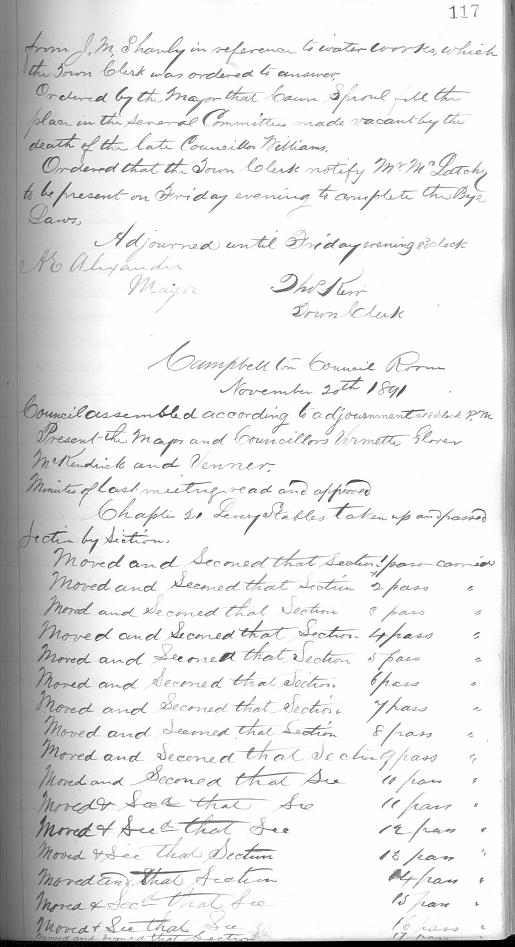 117
from J. M. Shanly in reference to water works, which
the Town Clerk was ordered to answer.
Ordered by the Mayor that Coun Sproul fill the
place in the General Committee made vacant by the
death of the late Councillor Williams.
Ordered that the Town Clerk notify Mr McLatchy
to be present on Friday evening to complete the Bye
Laws,
Adjourned until Friday evening 8 oclock
A E Alexander
Mayor
Thos Kerr
Town Clerk
Campbellton Council Room
November 20th 1891
Council assembled according to adjournment at 8 oclock P.M
Present the Mayor and Councillors Vermette Glover
McKendrick and Venner.
Minutes of last meeting read and approved
Chapter 21 Levery Stables taken up and passed
Section by Section.
Moved and Seconed that Section 1 pass carried
Moved and Seconed that Section 2 pass "
Moved and Seconed that Section 3 pass "
Moved and Seconed that Section 4 pass "
Moved and Seconed that Section 5 pass "
Moved and Seconed that Section 6 pass "
Moved and Seconed that Section 7 pass "
Moved and Seconed that Section 8 pass "
Moved and Seconed that Section 9 pass "
Moved and Seconed that Sec 10 pass "
Moved & Secd that Sec 11 pass "
Moved & Secd that Sec 12 pass "
Moved & Sec that Section 13 pass "
Moved and that Section 14 pass "
Moved & Secd that Sec 15 pass "
Moved & Sec that Sec 16 pass "
Moved and Seconed that Section 17 pass